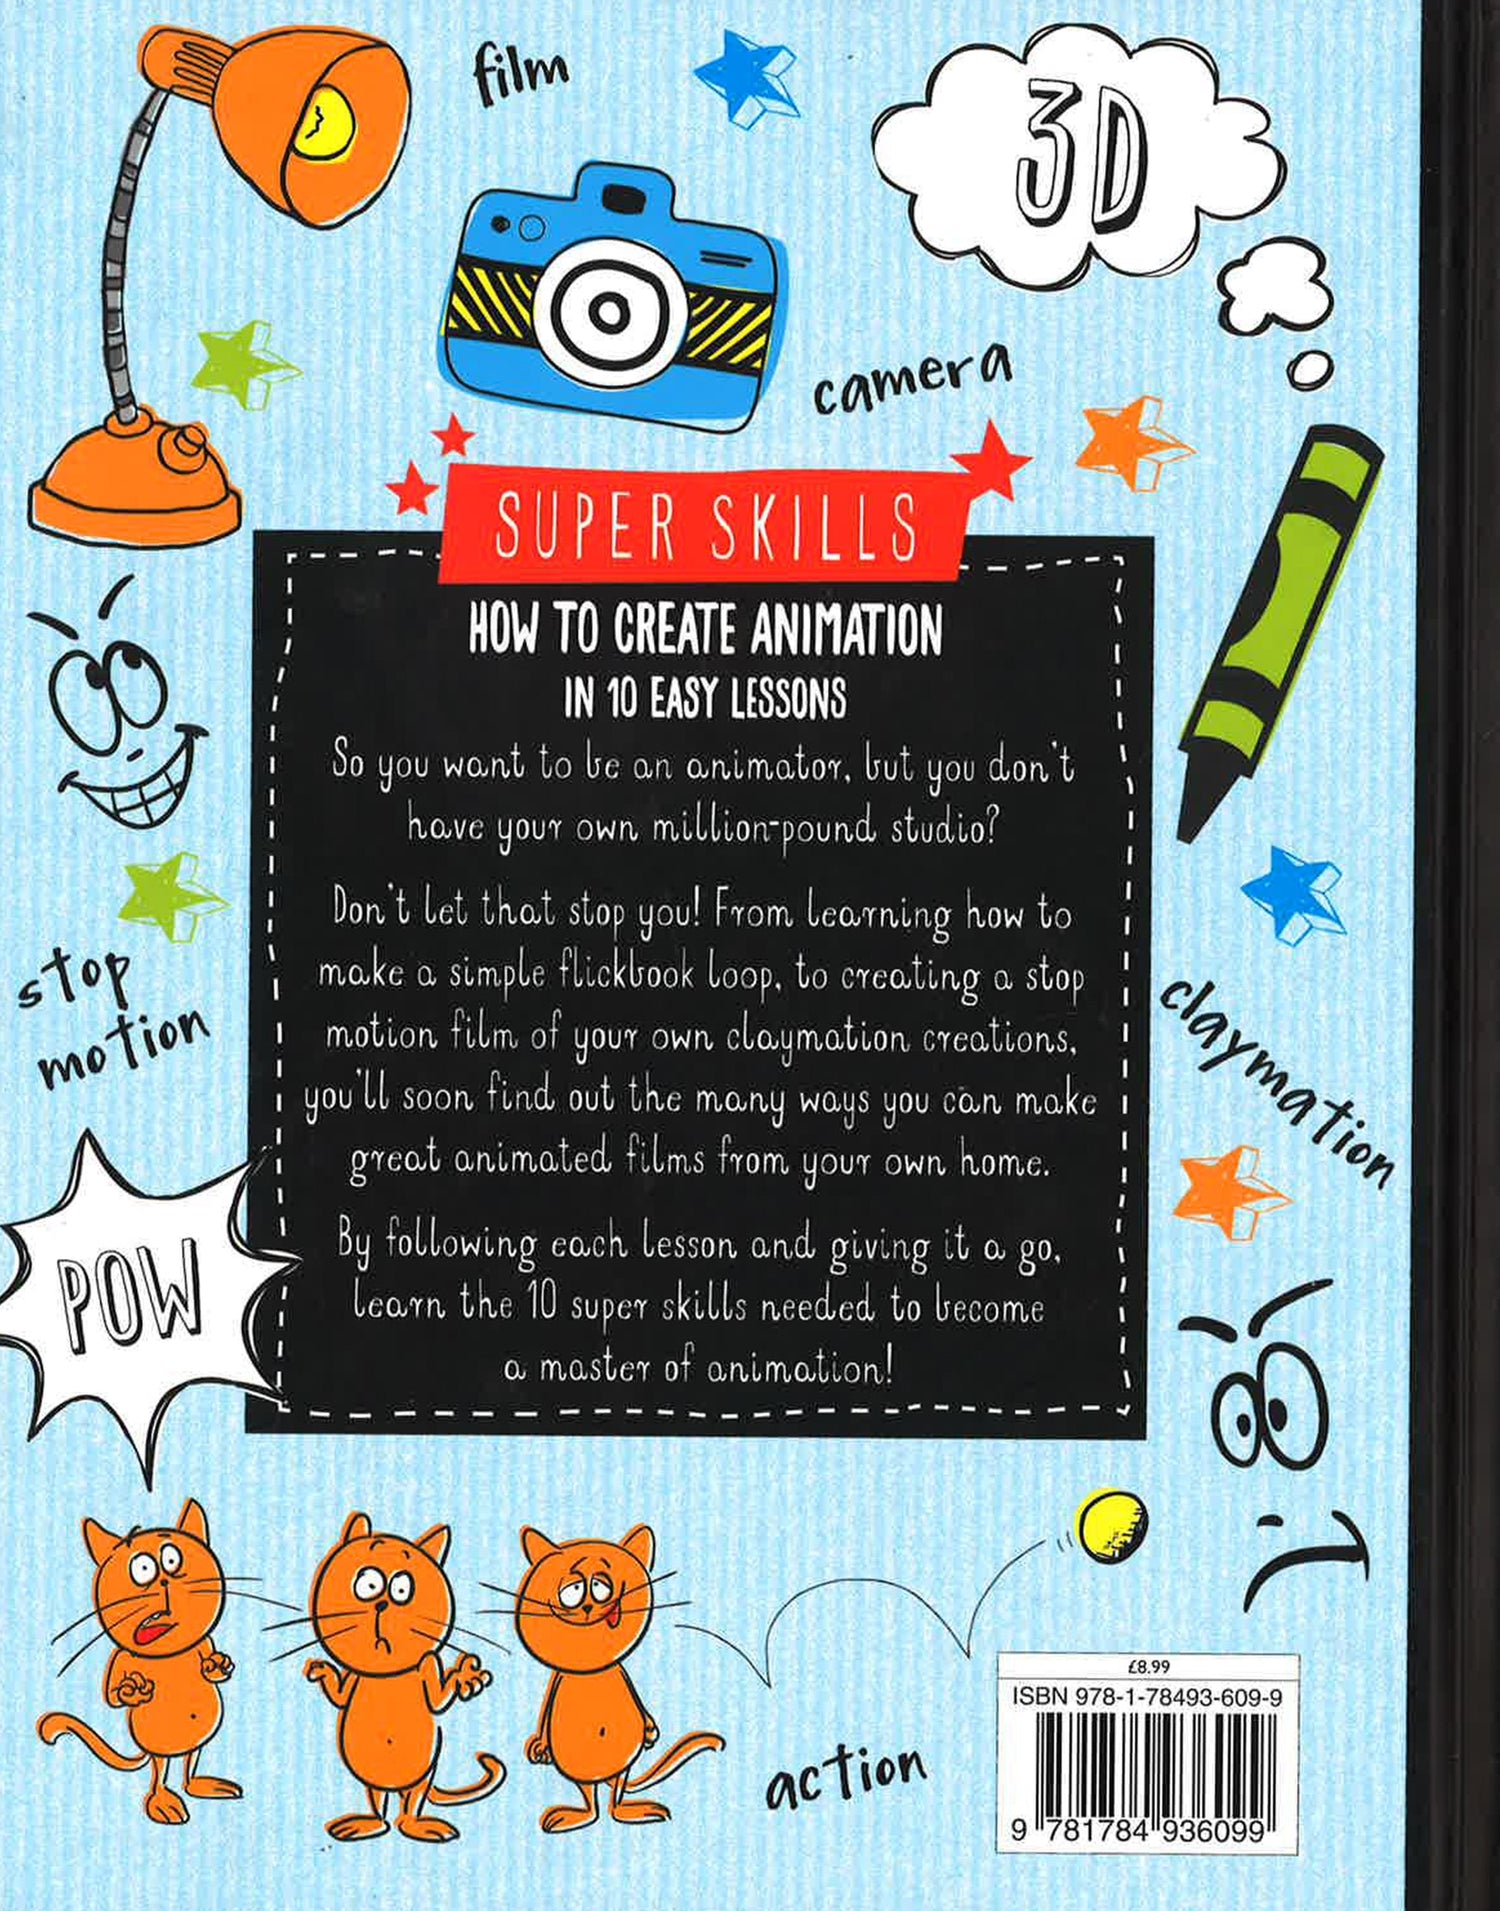 film
3D
camera
SUPER SKILLS
HOW TO CREATE ANIMATION
IN 10 EASY LESSONS
So you want to be an animator, but you don't
have your own million-pound studio?
Don't let that stop you! From learning how to
make a simple flickbook loop, to creating a stop
motion film of your own claymation creations,
you'll soon find out the many ways you can make
great animated films from your own home.
By following each lesson and giving it a go,
learn the 10 super skills needed to become
a master of animation!
stop
motion
claymation
POW
action
£8.99
ISBN 978-1-78493-609-9
9 781784 936099